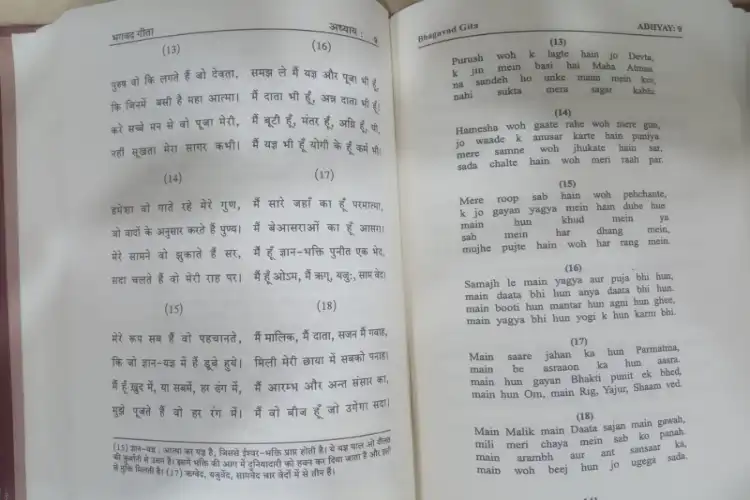 भगवद् गीता
अध्याय : 9
(13)
पुरुष वो कि लगते हैं जो देवता,
कि जिनमें बसी है महा आत्मा।
करे सच्चे मन से वो पूजा मेरी,
नहीं सूखता मेरा सागर कभी।
(14)
हमेशा वो गाते रहे मेरे गुण,
जो वादों के अनुसार करते हैं पुण्य।
मेरे सामने वो झुकाते हैं सर,
सदा चलते हैं वो मेरी राह पर।
(15)
मेरे रूप सब हैं वो पहचानते,
कि जो ज्ञान-यज्ञ में हैं डूबे हुये।
मैं हूँ खुद में, या सबमें, हर ढंग में,
मुझे पूजते हैं वो हर रंग में।
(16)
समझ ले मैं यज्ञ और पूजा भी हूँ,
मैं दाता भी हूँ, अन्न दाता भी हूँ।
मैं बूटी हूँ, मंतर हूँ, अग्नि हूँ, घी,
मैं यज्ञ भी हूँ योगी के हूँ कर्म भी।
(17)
मैं सारे जहाँ का हूँ परमात्मा,
मैं बेआसराओं का हूँ आसरा।
मैं हूँ ज्ञान-भक्ति पुनीत एक भेद,
मैं हूँ ओ३म, मैं ऋग्, यजुः, साम वेद।
(18)
मैं मालिक, मैं दाता, सजन मैं गवाह,
मिली मेरी छाया में सबको पनाह।
मैं आरम्भ और अन्त संसार का,
मैं वो बीज हूँ जो उगेगा सदा।
(15) ज्ञान-यज्ञ : आत्मा का यज्ञ है, जिससे ईश्वर-भक्ति प्राप्त होती है। ये यज्ञ माल ओ दौलत
की कुर्बानी से उत्तम है। इसमें भक्ति की आग में दुनियादारी को हवन कर दिया जाता है और
से मुक्ति मिलती है। (17) ऋग्वेद, यजुर्वेद, सामवेद चार वेदों में से तीन हैं।
Bhagavad Gita
ADHYAY: 9
(13)
Purush woh k lagte hain jo Devta,
k jin mein basi hai Maha Atmaa.
na sandeh ho unke mann mein koi,
nahi sukta mera sagar kabhi.
(14)
Hamesha woh gaate rahe woh mere gun,
jo waade k anusar karte hain puniya.
mere samne woh jhukate hain sar,
sada chalte hain woh meri raah par.
(15)
Mere roop sab hain woh pehchante,
k jo gayan yagya mein hain dube hue.
main hun khud mein ya
sab mein har dhang mein,
mujhe pujte hain woh har rang mein.
(16)
Samajh le main yagya aur puja bhi hun,
main daata bhi hun anya daata bhi hun.
main booti hun mantar hun agni hun ghee,
main yagya bhi hun yogi k hun karm bhi.
(17)
Main saare jahan ka hun Parmatma,
main be asraaon ka hun aasra.
main hun gayan Bhakti punit ek bhed,
main hun Om, main Rig, Yajur, Shaam ved.
(18)
Main Malik main Daata sajan main gawah,
mili meri chaya mein sab ko panah.
main arambh aur ant sansaar ka,
main woh beej hun jo ugega sada.